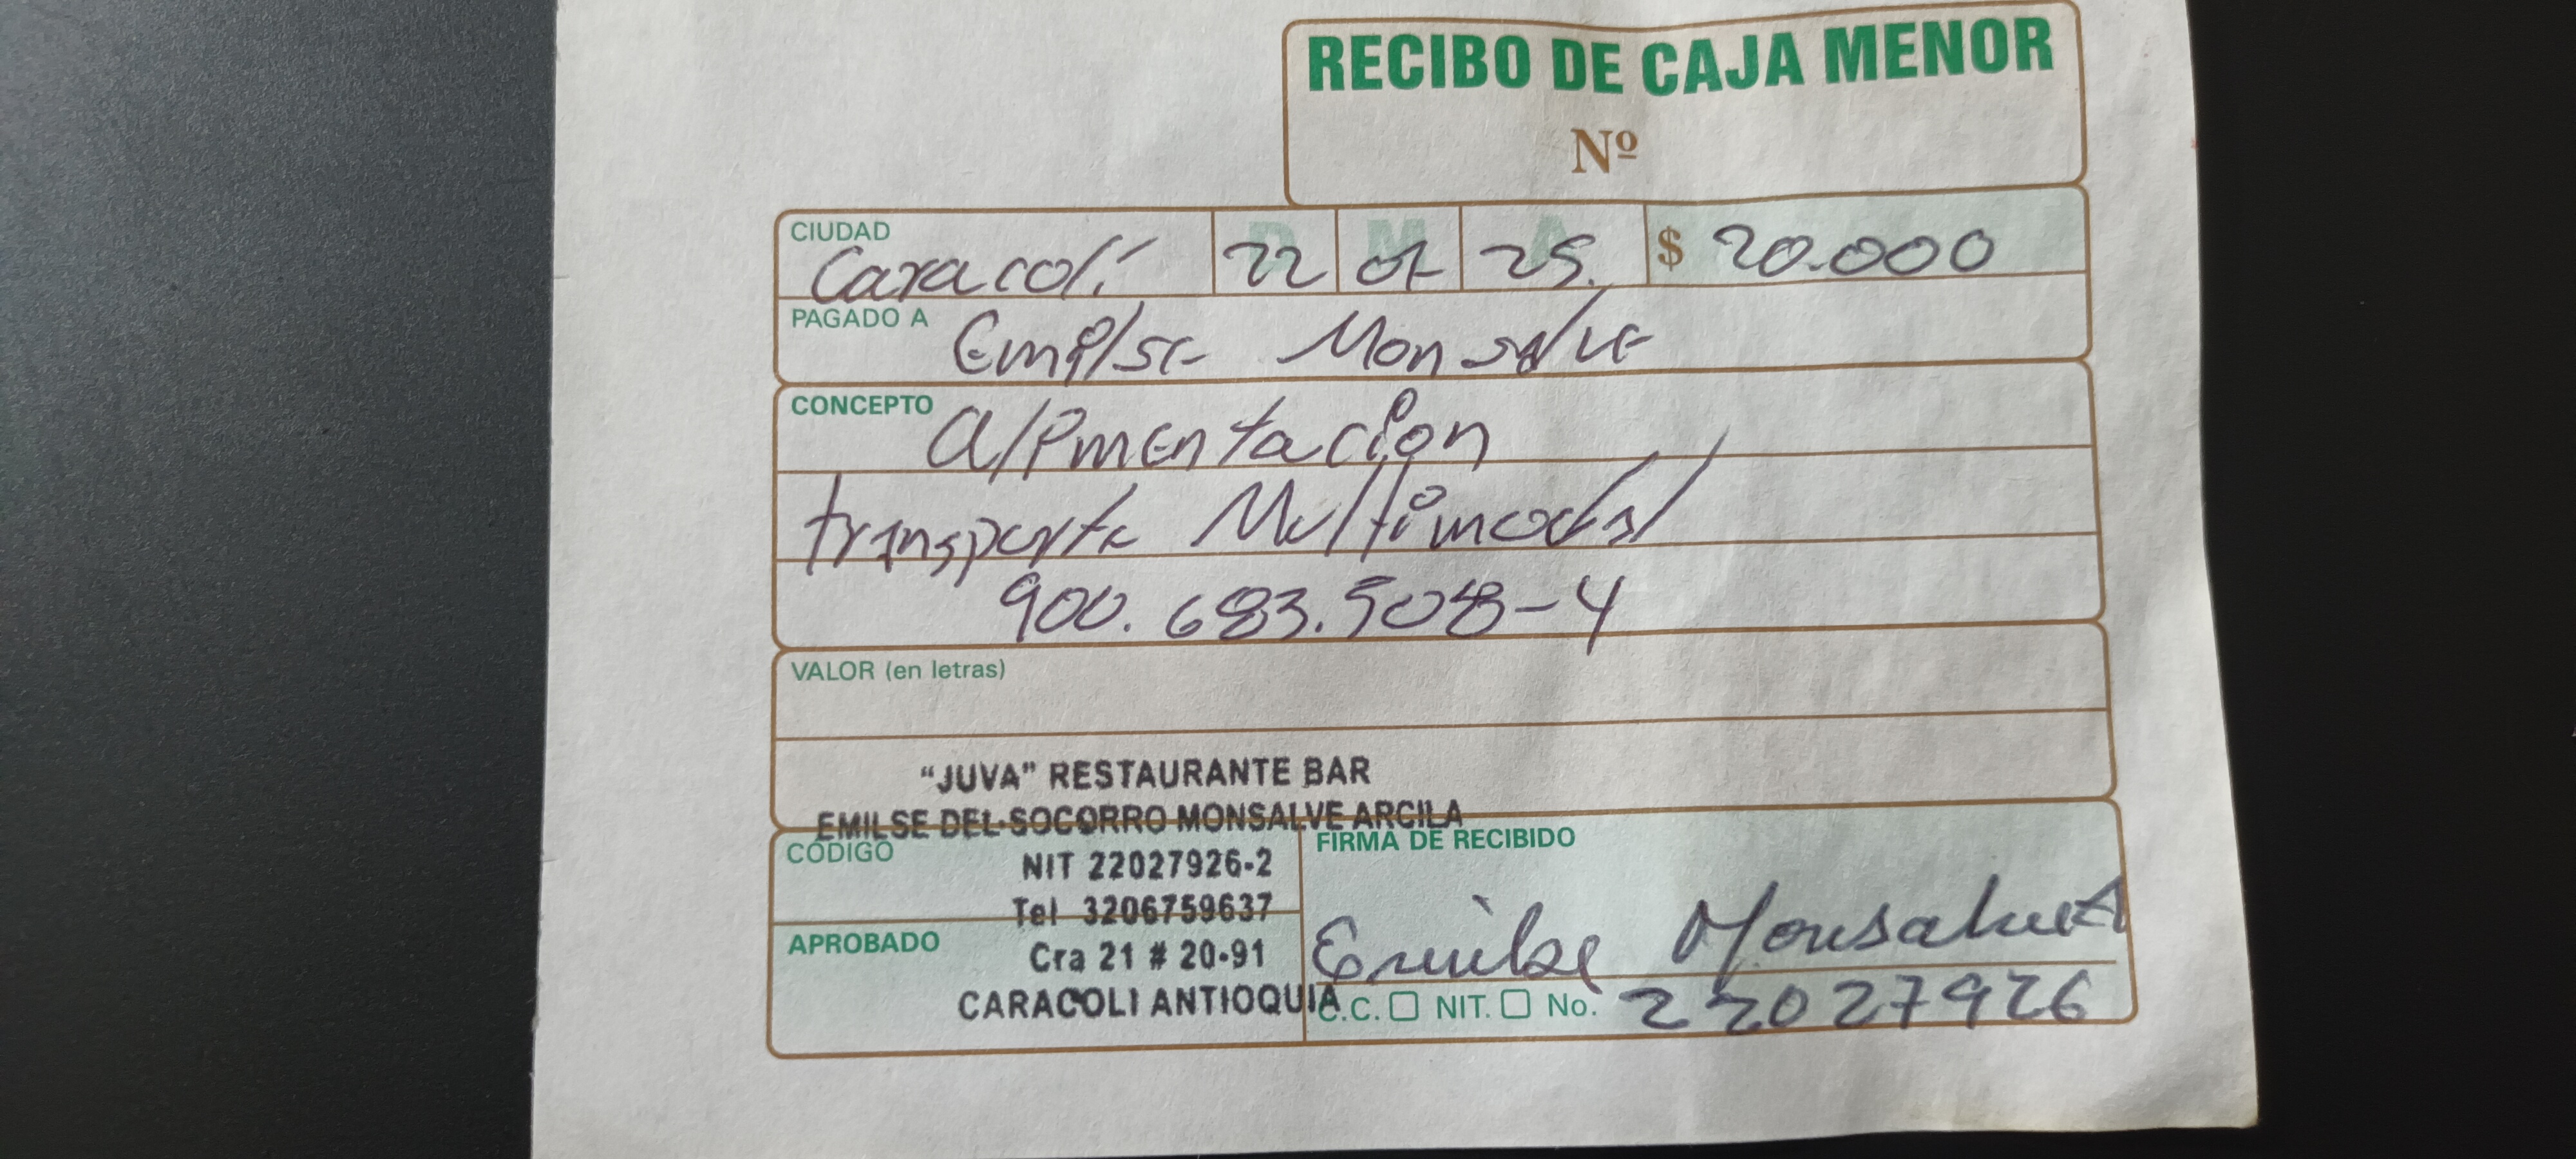 RECIBO DE CAJA MENOR
Nº
CIUDAD Caracolí D M A 22 01 25. $ 20.000
PAGADO A Emilse Monsalve
CONCEPTO alimentacion
transporte Multimodal
900.683.508-4
VALOR (en letras)
“JUVA” RESTAURANTE BAR
EMILSE DEL SOCORRO MONSALVE ARCILA
CÓDIGO
NIT 22027926-2
Tel 3206759637
APROBADO
Cra 21 # 20-91
CARACOLI ANTIOQUIA
FIRMA DE RECIBIDO
Emilse Monsalve A
C.C. NIT. No. 22027926